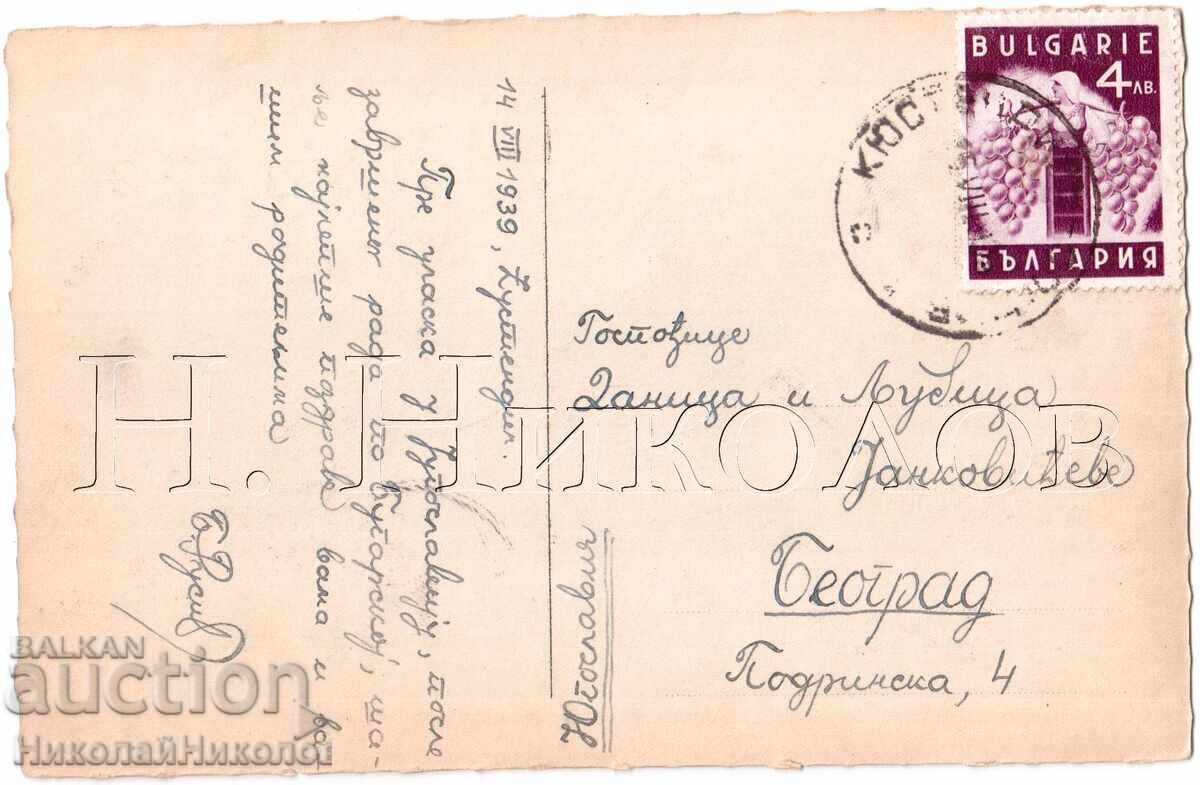 BULGARIE
4 ЛВ.
БЪЛГАРИЯ
14 VIII 1939, Ћустендил.
Пре уласка у Југославију, после
завршеног рада по Бугарској, ша-
ље најлепше поздраве вама и ва-
шим родитељима
Госпођице
Даница и Љубица
Јанковићеве
Београд
Подринска, 4
Югославия
Н. НИКОЛОВ
BALKAN
auction
НиколайНиколов